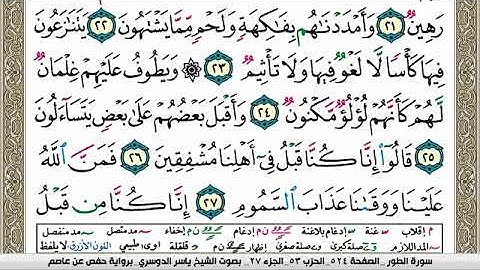 رَهِينٌ ٢١ وَأَمْدَدْنَٰهُم بِفَٰكِهَةٍ وَلَحْمٍ مِّمَّا يَشْتَهُونَ ٢٢ يَتَنَٰزَعُونَ
فِيهَا كَأْسًا لَّا لَغْوٌ فِيهَا وَلَا تَأْثِيمٌ ٢٣ ۞ وَيَطُوفُ عَلَيْهِمْ غِلْمَانٌ
لَّهُمْ كَأَنَّهُمْ لُؤْلُؤٌ مَّكْنُونٌ ٢٤ وَأَقْبَلَ بَعْضُهُمْ عَلَىٰ بَعْضٍ يَتَسَآءَلُونَ
٢٥ قَالُوٓا۟ إِنَّا كُنَّا قَبْلُ فِىٓ أَهْلِنَا مُشْفِقِينَ ٢٦ فَمَنَّ ٱللَّهُ
عَلَيْنَا وَوَقَىٰنَا عَذَابَ ٱلسَّمُومِ ٢٧ إِنَّا كُنَّا مِن قَبْلُ
م إقلاب غنة إدغام بلاغنة إدغام إخفاء مد متصل مد منفصل
المد اللازم صلة كبرى صلة صغرى إظهار قلقلة طبيعي اللون الأزرق لا يلفظ
سورة الطور_الصفحة ٥٢٤_ الحزب ٥٣_الجزء ٢٧_ بصوت الشيخ ياسر الدوسري_برواية حفص عن عاصم